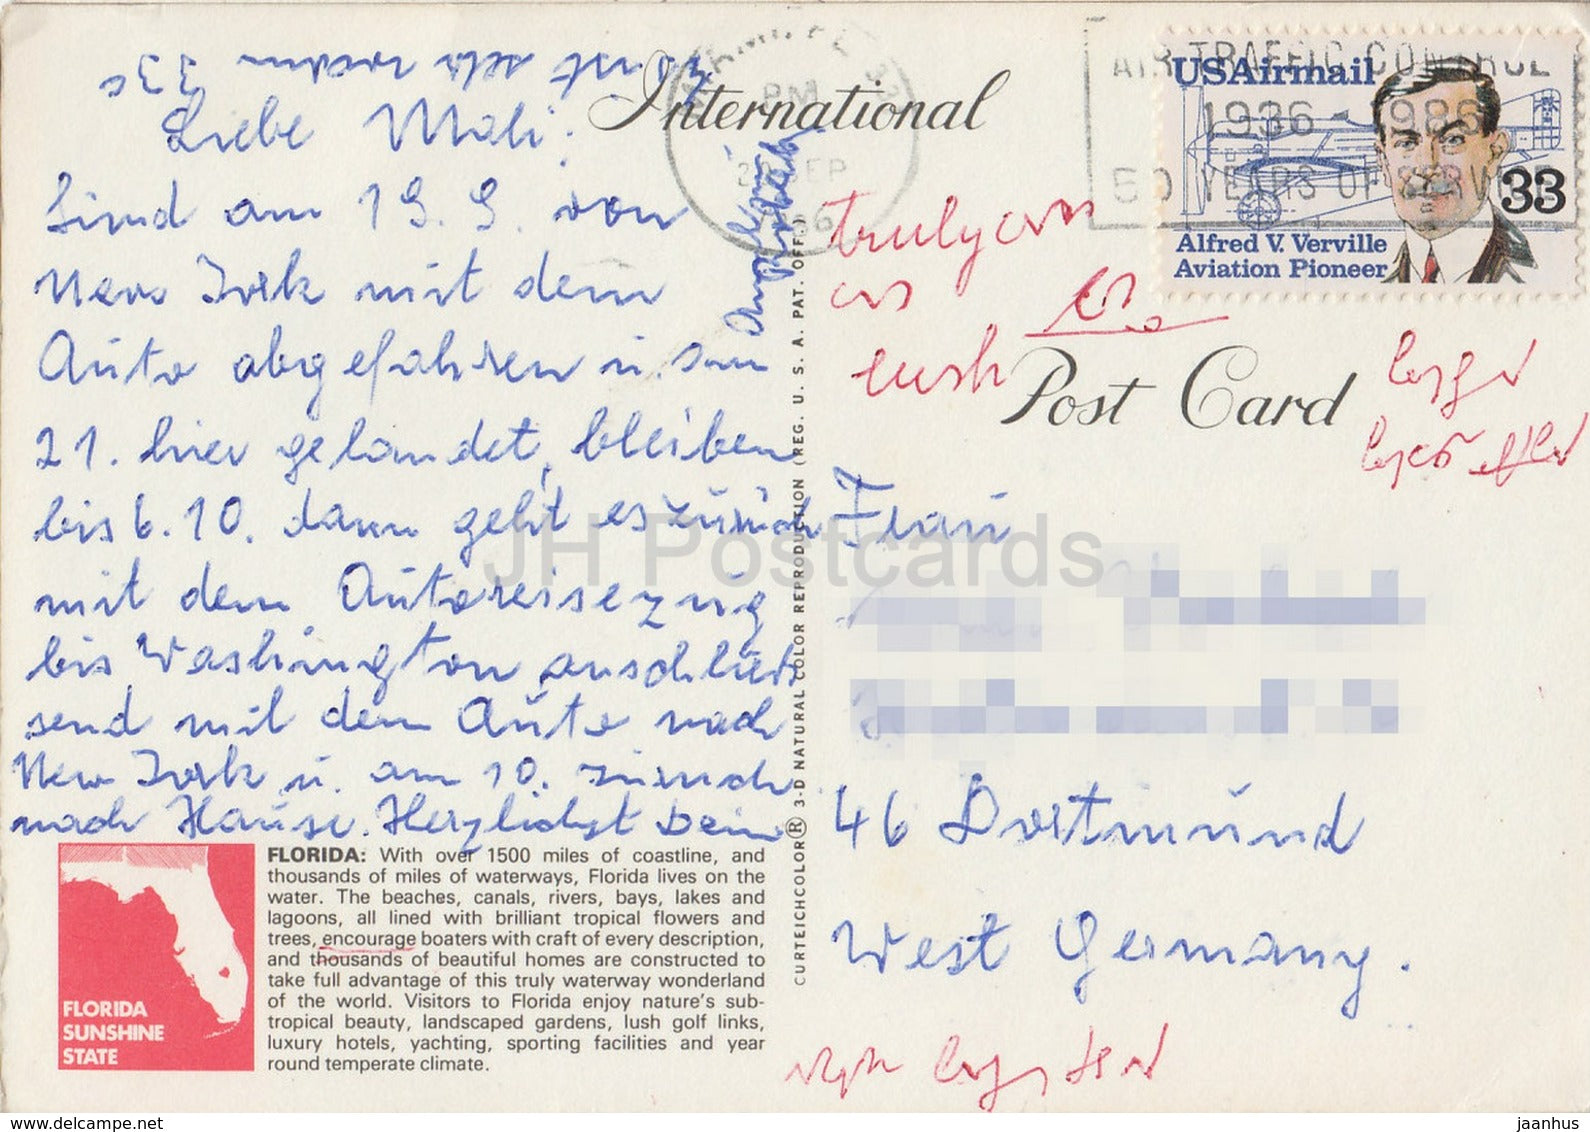 Zurzeit sehr warm 33c
Liebe Mali!
Sind am 19.9. von
New York mit dem
Auto abgefahren u. am
21. hier gelandet, bleiben
bis 6.10. dann geht es zurück
mit dem Autoreisezug
bis Washington anschlies
send mit dem Auto nach
New York u. am 10. zurück
nach Hause. Herzlichst Deine
FLORIDA: With over 1500 miles of coastline, and
thousands of miles of waterways, Florida lives on the
water. The beaches, canals, rivers, bays, lakes and
lagoons, all lined with brilliant tropical flowers and
trees, encourage boaters with craft of every description,
and thousands of beautiful homes are constructed to
take full advantage of this truly waterway wonderland
of the world. Visitors to Florida enjoy nature's sub-
tropical beauty, landscaped gardens, lush golf links,
luxury hotels, yachting, sporting facilities and year
round temperate climate.
FLORIDA
SUNSHINE
STATE
CURTEICHCOLOR® 3-D NATURAL COLOR REPRODUCTION (REG. U. S. A. PAT. OFF.)
International
Post Card
PM
SEP
AIR TRAFFIC CONTROL
1936 - 1986
50 YEARS OF SERVICE
USAirmail
33
Alfred V. Verville
Aviation Pioneer
truly
lush
Frau
46 Dortmund
West Germany.
JH Postcards
www.delcampe.net
jaanhus